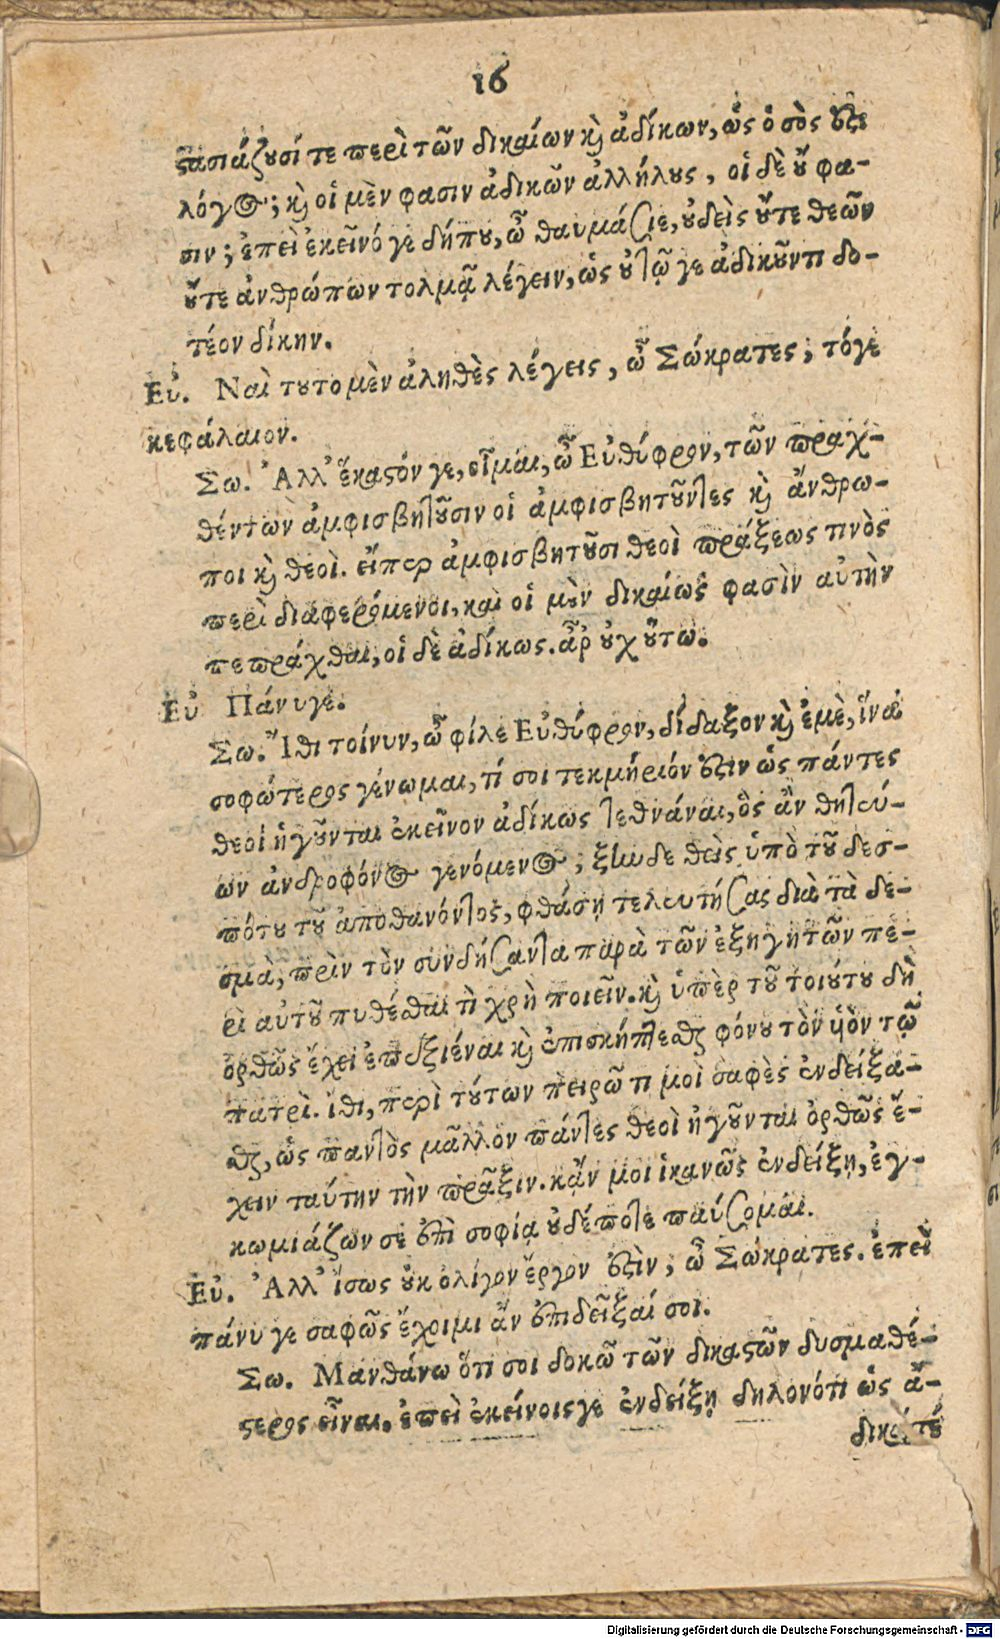 16
στασιάζουσί τε περὶ τῶν δικαίων καὶ ἀδίκων, ὡς ὁ σὸς
λόγος; καὶ οἱ μὲν φασιν ἀδικεῖν ἀλλήλους, οἱ δὲ οὔ φα-
σιν; ἐπεὶ ἐκεῖνό γε δήπου, ὦ θαυμάσιε, οὐδεὶς οὔτε θεῶν
οὔτε ἀνθρώπων τολμᾷ λέγειν, ὡς οὐ τῷ γε ἀδικοῦντι δο-
τέον δίκην.
Εὐ. Ναὶ τοῦτο μὲν ἀληθὲς λέγεις, ὦ Σώκρατες; τόγε
κεφάλαιον.
Σω. Ἀλλ' ἕκαστόν γε, οἶμαι, ὦ Εὐθύφρον, τῶν πραχ-
θέντων ἀμφισβητοῦσιν οἱ ἀμφισβητοῦντες καὶ ἄνθρω-
ποι καὶ θεοὶ. εἴπερ ἀμφισβητοῦσι θεοὶ πράξεως τινὸς
περὶ διαφερόμενοι, καὶ οἱ μὲν δικαίως φασὶν αὐτὴν
πεπράχθαι, οἱ δὲ ἀδίκως. ἆρ οὐχ οὕτω.
Εὐ Πάνυγε.
Σω. Ἴθι τοίνυν, ὦ φίλε Εὐθύφρον, δίδαξον καὶ ἐμὲ, ἵνα
σοφώτερος γένωμαι, τί σοι τεκμήριόν ἐστιν ὡς πάντες
θεοὶ ἡγοῦνται ἐκεῖνον ἀδίκως τεθνάναι, ὃς ἂν θητεύ-
ων ἀνδροφόνος γενόμενος; ξυνδεθεὶς ὑπὸ τοῦ δεσ-
πότου τοῦ ἀποθανόντος, φθάσῃ τελευτήσας διὰ τὰ δε-
σμὰ, πρὶν τὸν συνδήσαντα παρὰ τῶν ἐξηγητῶν πε-
ρὶ αὐτοῦ πυθέσθαι τὶ χρὴ ποιεῖν. καὶ ὑπὲρ τοῦ τοιούτου δὴ
ὀρθῶς ἔχει ἐπεξιέναι καὶ ἐπισκήπτεσθαι φόνου τὸν υἱὸν τῷ
πατρὶ. ἴθι, περὶ τούτων πειρῶ τι μοὶ σαφὲς ἐνδείξα-
σθαι, ὡς παντὸς μᾶλλον πάντες θεοὶ ἡγοῦνται ὀρθῶς ἔ-
χειν ταύτην τὴν πρᾶξιν. κἄν μοι ἱκανῶς ἐνδείξῃ, ἐγ-
κωμιάζων σε ἐπὶ σοφίᾳ οὐδέποτε παύσομαι.
Εὐ. Ἀλλ' ἴσως οὐκ ὀλίγον ἔργον ἐστὶν; ὦ Σώκρατες. ἐπεὶ
πάνυ γε σαφῶς ἔχοιμι ἂν ἐπιδεῖξαί σοι.
Σω. Μανθάνω ὅτι σοι δοκῶ τῶν δικαστῶν δυσμαθέ-
στερος εἶναι. ἐπεὶ ἐκείνοις γε ἐνδείξῃ δηλονότι ὡς ἄ-